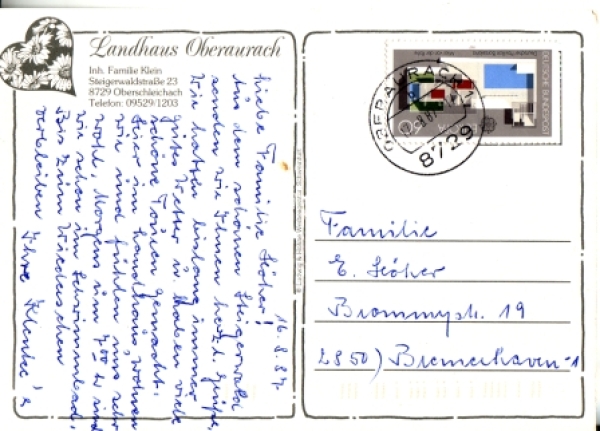 Landhaus Oberaurach
Inh. Familie Klein
Steigerwaldstraße 23
8729 Oberschleichach
Telefon: 09529/1203
16.8.87
Liebe Familie Höher!
Aus dem schönen Steigerwald
senden wir Ihnen herzl. Grüße.
Wir hatten bislang immer
gutes Wetter u. haben viele
schöne Touren gemacht.
Hier im Landhaus wohnen
wir und fühlen uns sehr
wohl. Morgens um 7 00 sind
wir schon im Schwimmbad.
Bis zum Wiedersehen
verbleiben Ihre
OBERAURACH 1
8729
DEUTSCHE BUNDESPOST
Familie
E. Höher
Brommystr. 19
2850) Bremerhaven-1